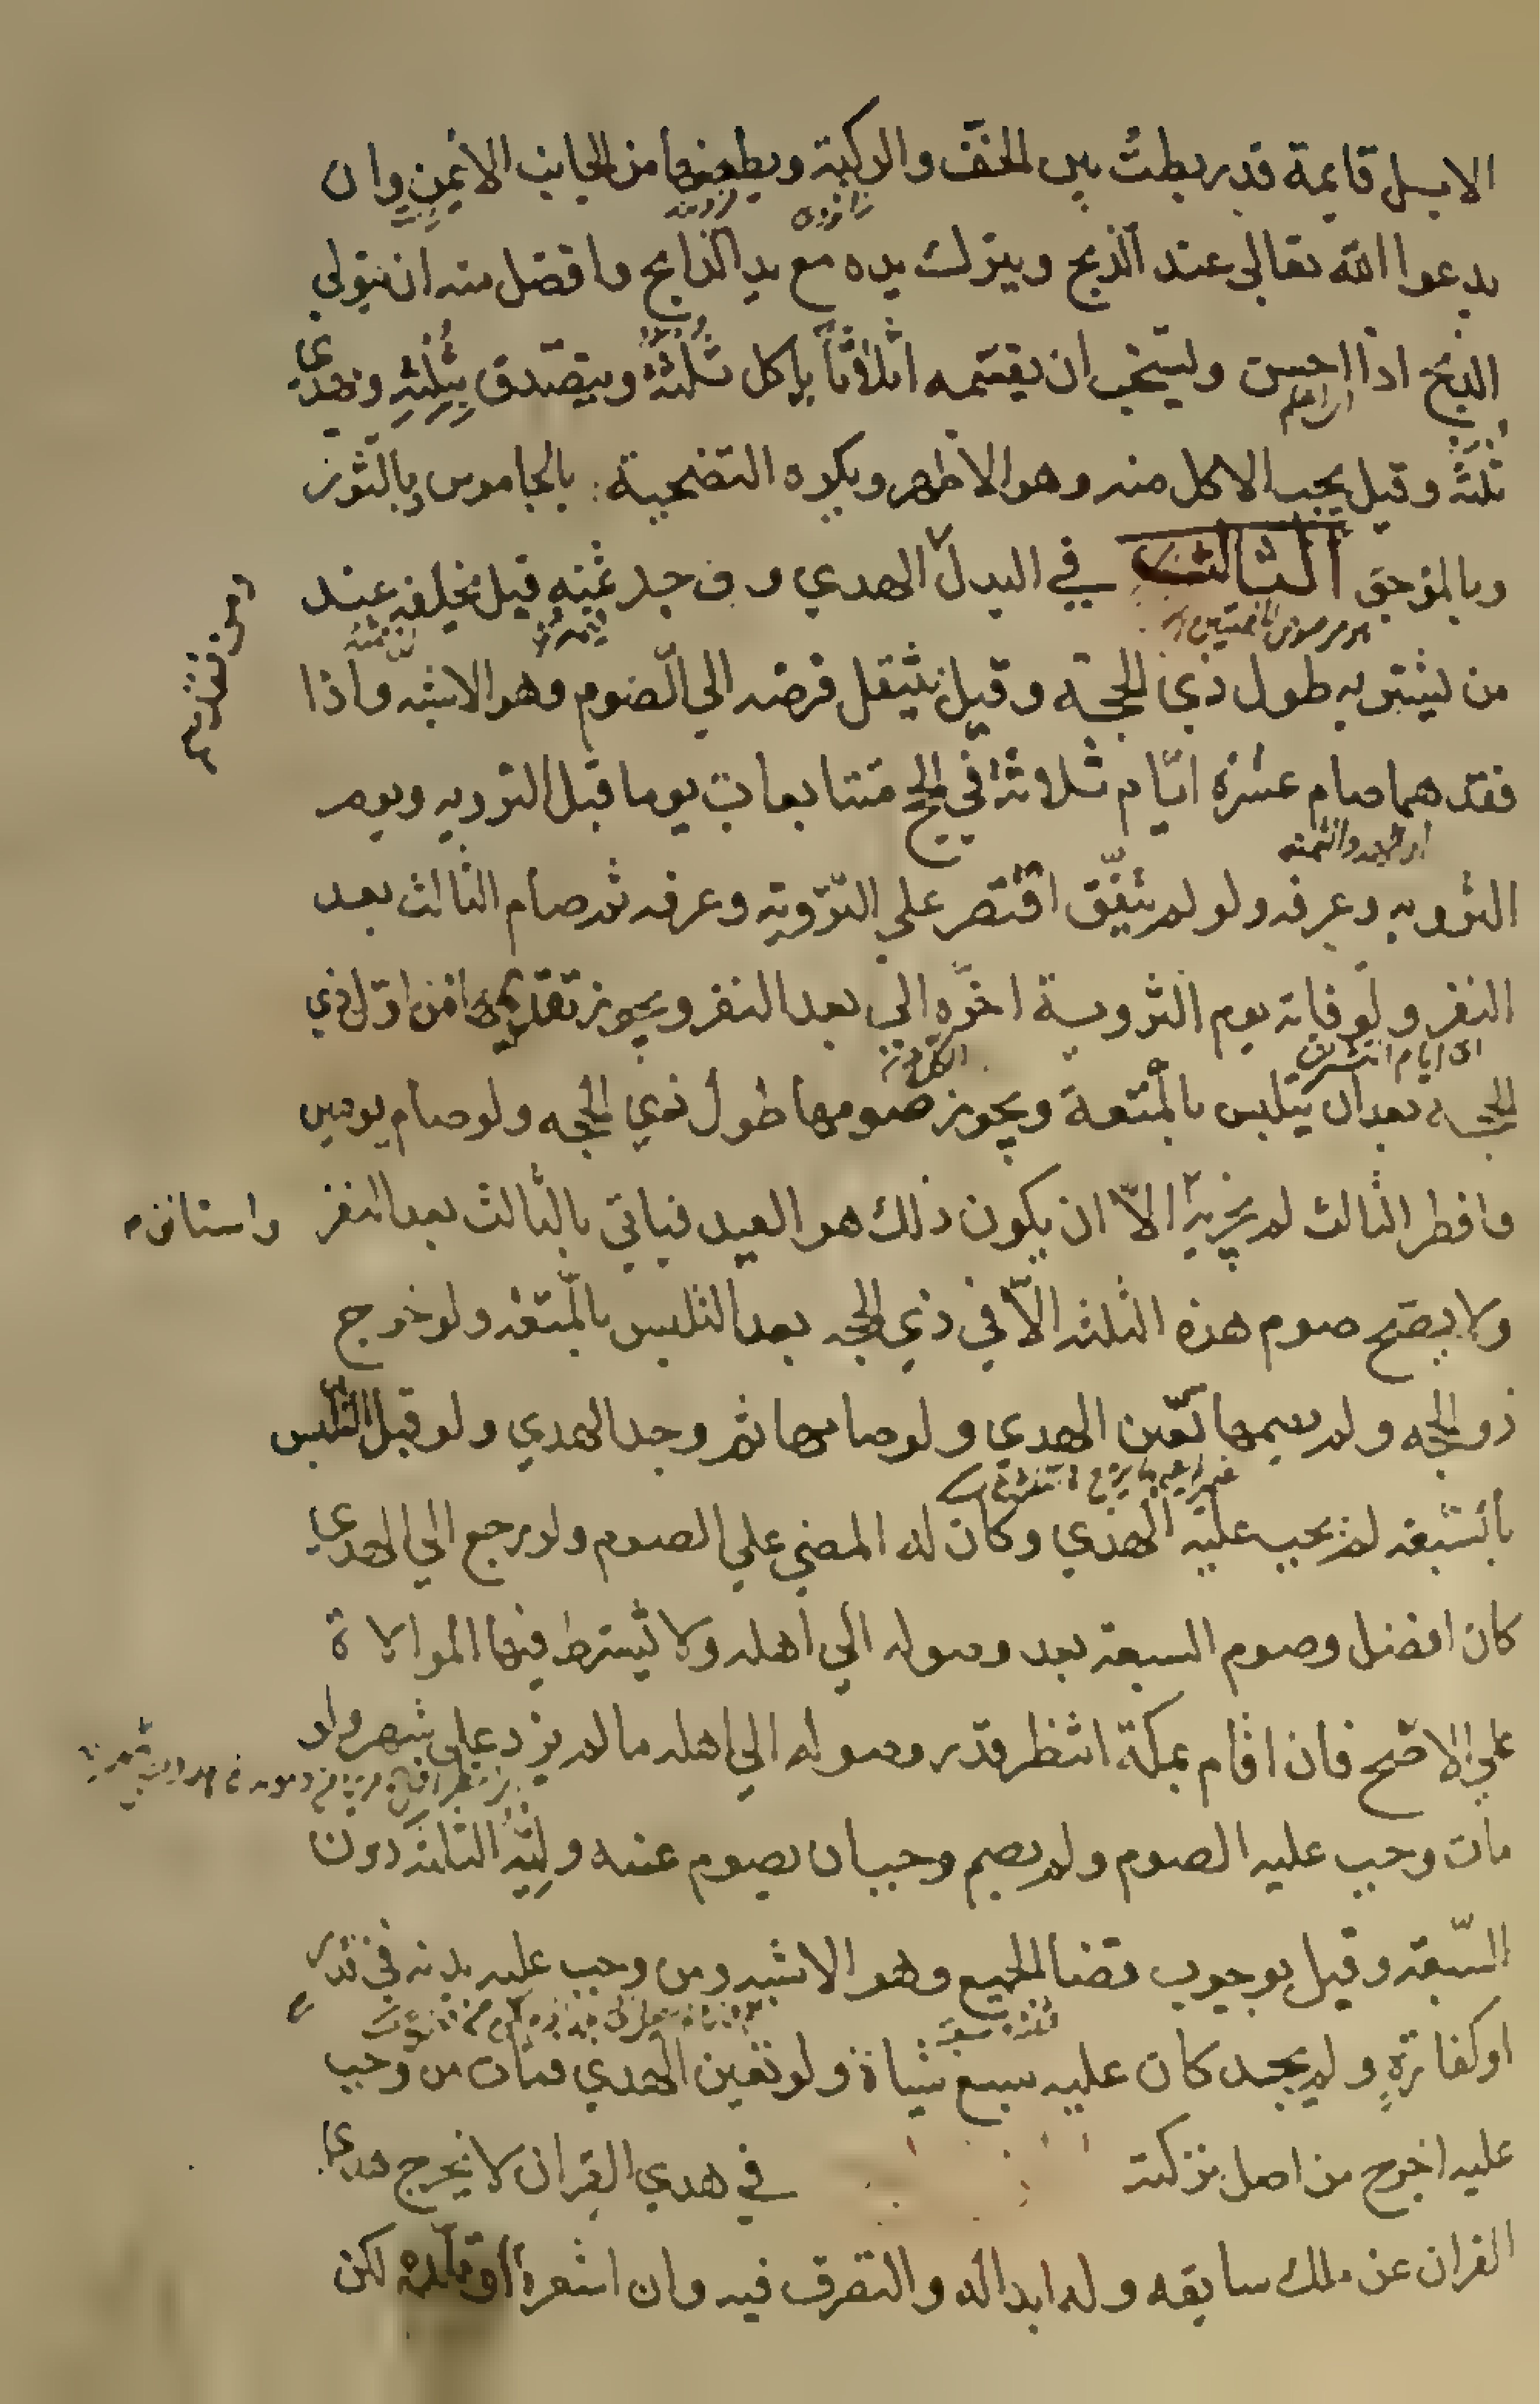 الابل قايمة قد ربطت بين الخف والركبة ويطعنها من الجانب الايمن وان
يدعوا الله تعالى عند الذبح ويترك يده مع يد الذابح وافضل منه ان يتولى
الذبح اذا احسن ويستحب ان يقسمه اثلاثا ياكل ثلثه ويتصدق بثلثه ويهدي
ثلثه وقيل يجب الاكل منه وهو الاظهر ويكره التضحية بالجاموس وبالثور
وبالموجو الثالث في البدل الهدي وجد ثمنه قيل يخلفه عند
من يشتريه طول ذي الحجة وقيل ينتقل فرضه الي الصوم وهو الاشبه واذا
فقدهما صام عشرة ايام ثلاثة في الحج متتابعات يوما قبل الترويه ويوم
الترويه وعرفه ولو لم يتفق اقتصر علي التروية وعرفه ثم صام الثالث بعد
النفر ولو فاته يوم التروية اخره الي بعد النفر ويجوز تقديمها من اول ذي
اي ايام التشريق
الحجه بعد ان يتلبس بالمتعة ويجوز صومها طول ذي الحجه ولو صام يومين
وافطر الثالث لم يجزيه الا ان يكون ذلك هو العيد فياتي بالثالث بعد النفر
واستانف
ولا يصح صوم هذه الثلثه الا في ذي الحجه بعد التلبس بالمتعه ولو خرج
ذو الحجه ولم يصمها تعين الهدي ولو صامها ثم وجد الهدي ولو قبل التلبس
بالسبعه لم يجب عليه الهدي وكان له المضي علي الصوم ولو رجع الي الهدي
كان افضل وصوم السبعة بعد وصوله الي اهله ولا يشترط فيها الموالاة
علي الاصح فان اقام بمكة انتظر قدر وصوله الي اهله ما لم يزد علي شهر ولو
مات وجب عليه الصوم ولم يصم وجب ان يصوم عنه وليه الثلثة دون
السبعه وقيل بوجوب قضا الجميع وهو الاشبه ومن وجب عليه بدنه في نذر
او كفارة ولم يجد كان عليه سبع شياة ولو تعين الهدي فمات من وجب
عليه اخرج من اصل تركته في هدي القران لا يخرج هدي
القران عن ملك سايقه وله ابداله والتصرف فيه وان اشعره او قلده لكن